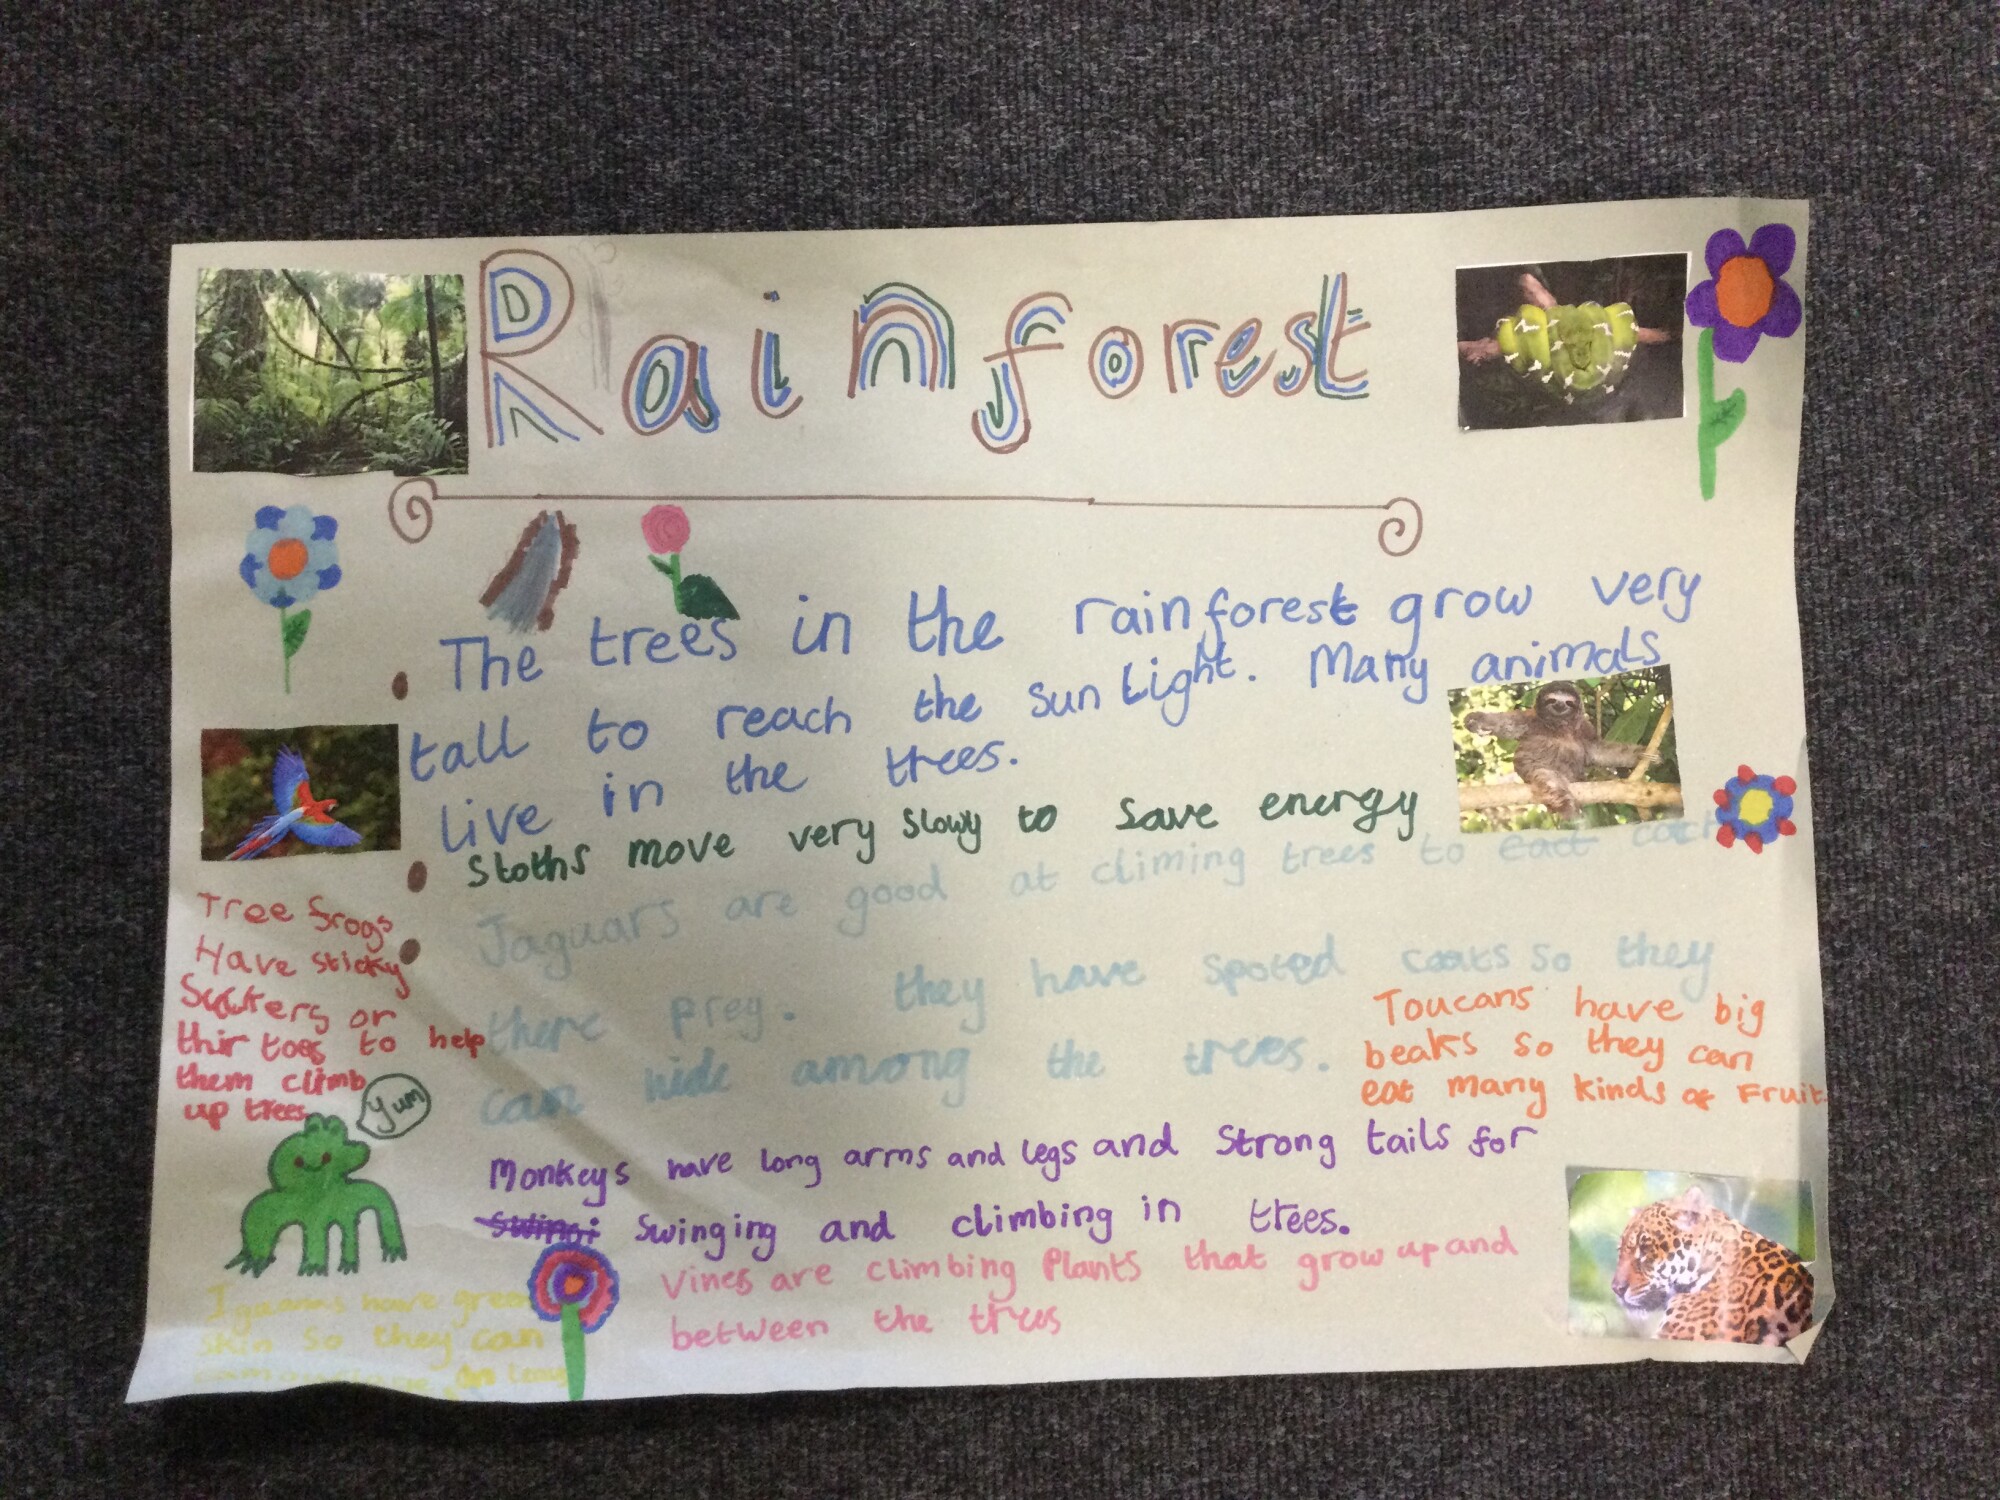 Rainforest
The trees in the rainforest grow very
tall to reach the sun light. Many animals
live in the trees.
Sloths move very slowy to save energy
Jaguars are good at climing trees to eat catch
there prey. they have spoted coats so they
can hide among the trees.
Tree frogs
Have sticky
Suckers on
thir toes to help
them climb
up trees
yum
Toucans have big
beaks so they can
eat many kinds of Fruit.
Monkeys have long arms and legs and strong tails for
swinging and climbing in trees.
Vines are climbing Plants that grow up and
between the trees
Iguanas have green
skin so they can